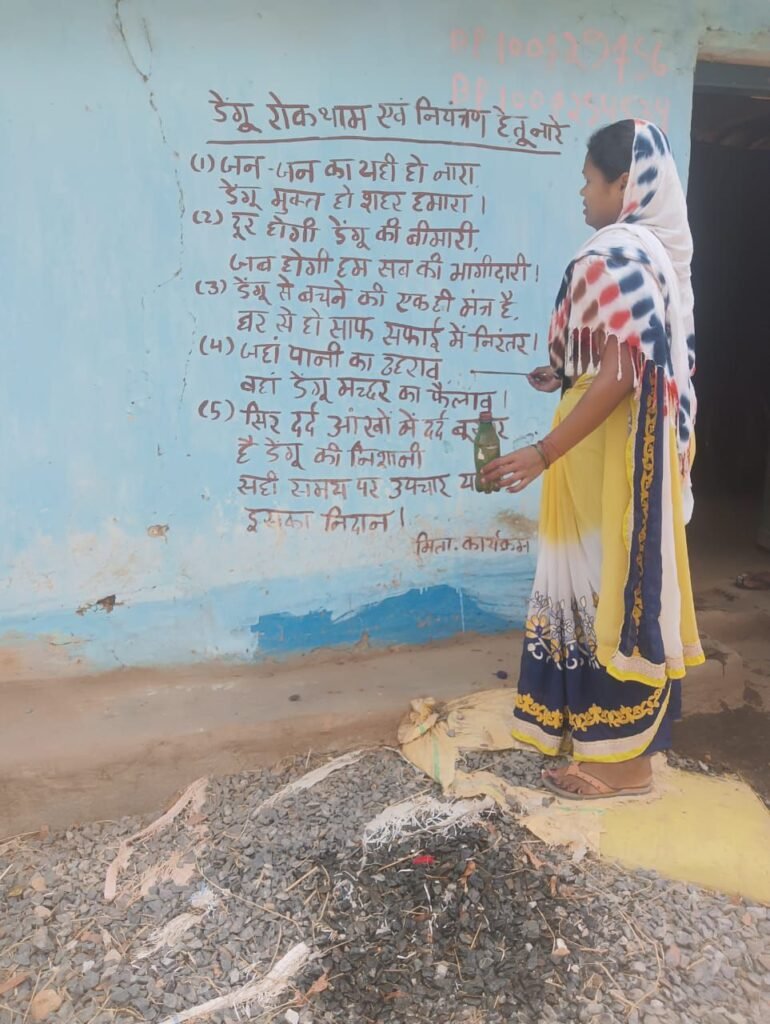 BP100729756
BP1007294594
डेंगू रोकथाम एवं नियंत्रण हेतू नारे
(1) जन-जन का यही हो नारा,
डेंगू मुक्त हो शहर हमारा।
(2) दूर होगी डेंगू की बीमारी,
जब होगी हम सब की भागीदारी।
(3) डेंगू से बचने की एक ही मंत्र है,
घर से हो साफ सफाई में निरंतर।
(4) जहां पानी का ठहराव,
वहां डेंगू मच्छर का फैलाव।
(5) सिर दर्द आंखों में दर्द
है डेंगू की निशानी
सही समय पर उपचार
इसका निदान।
मिता. कार्यक्रम